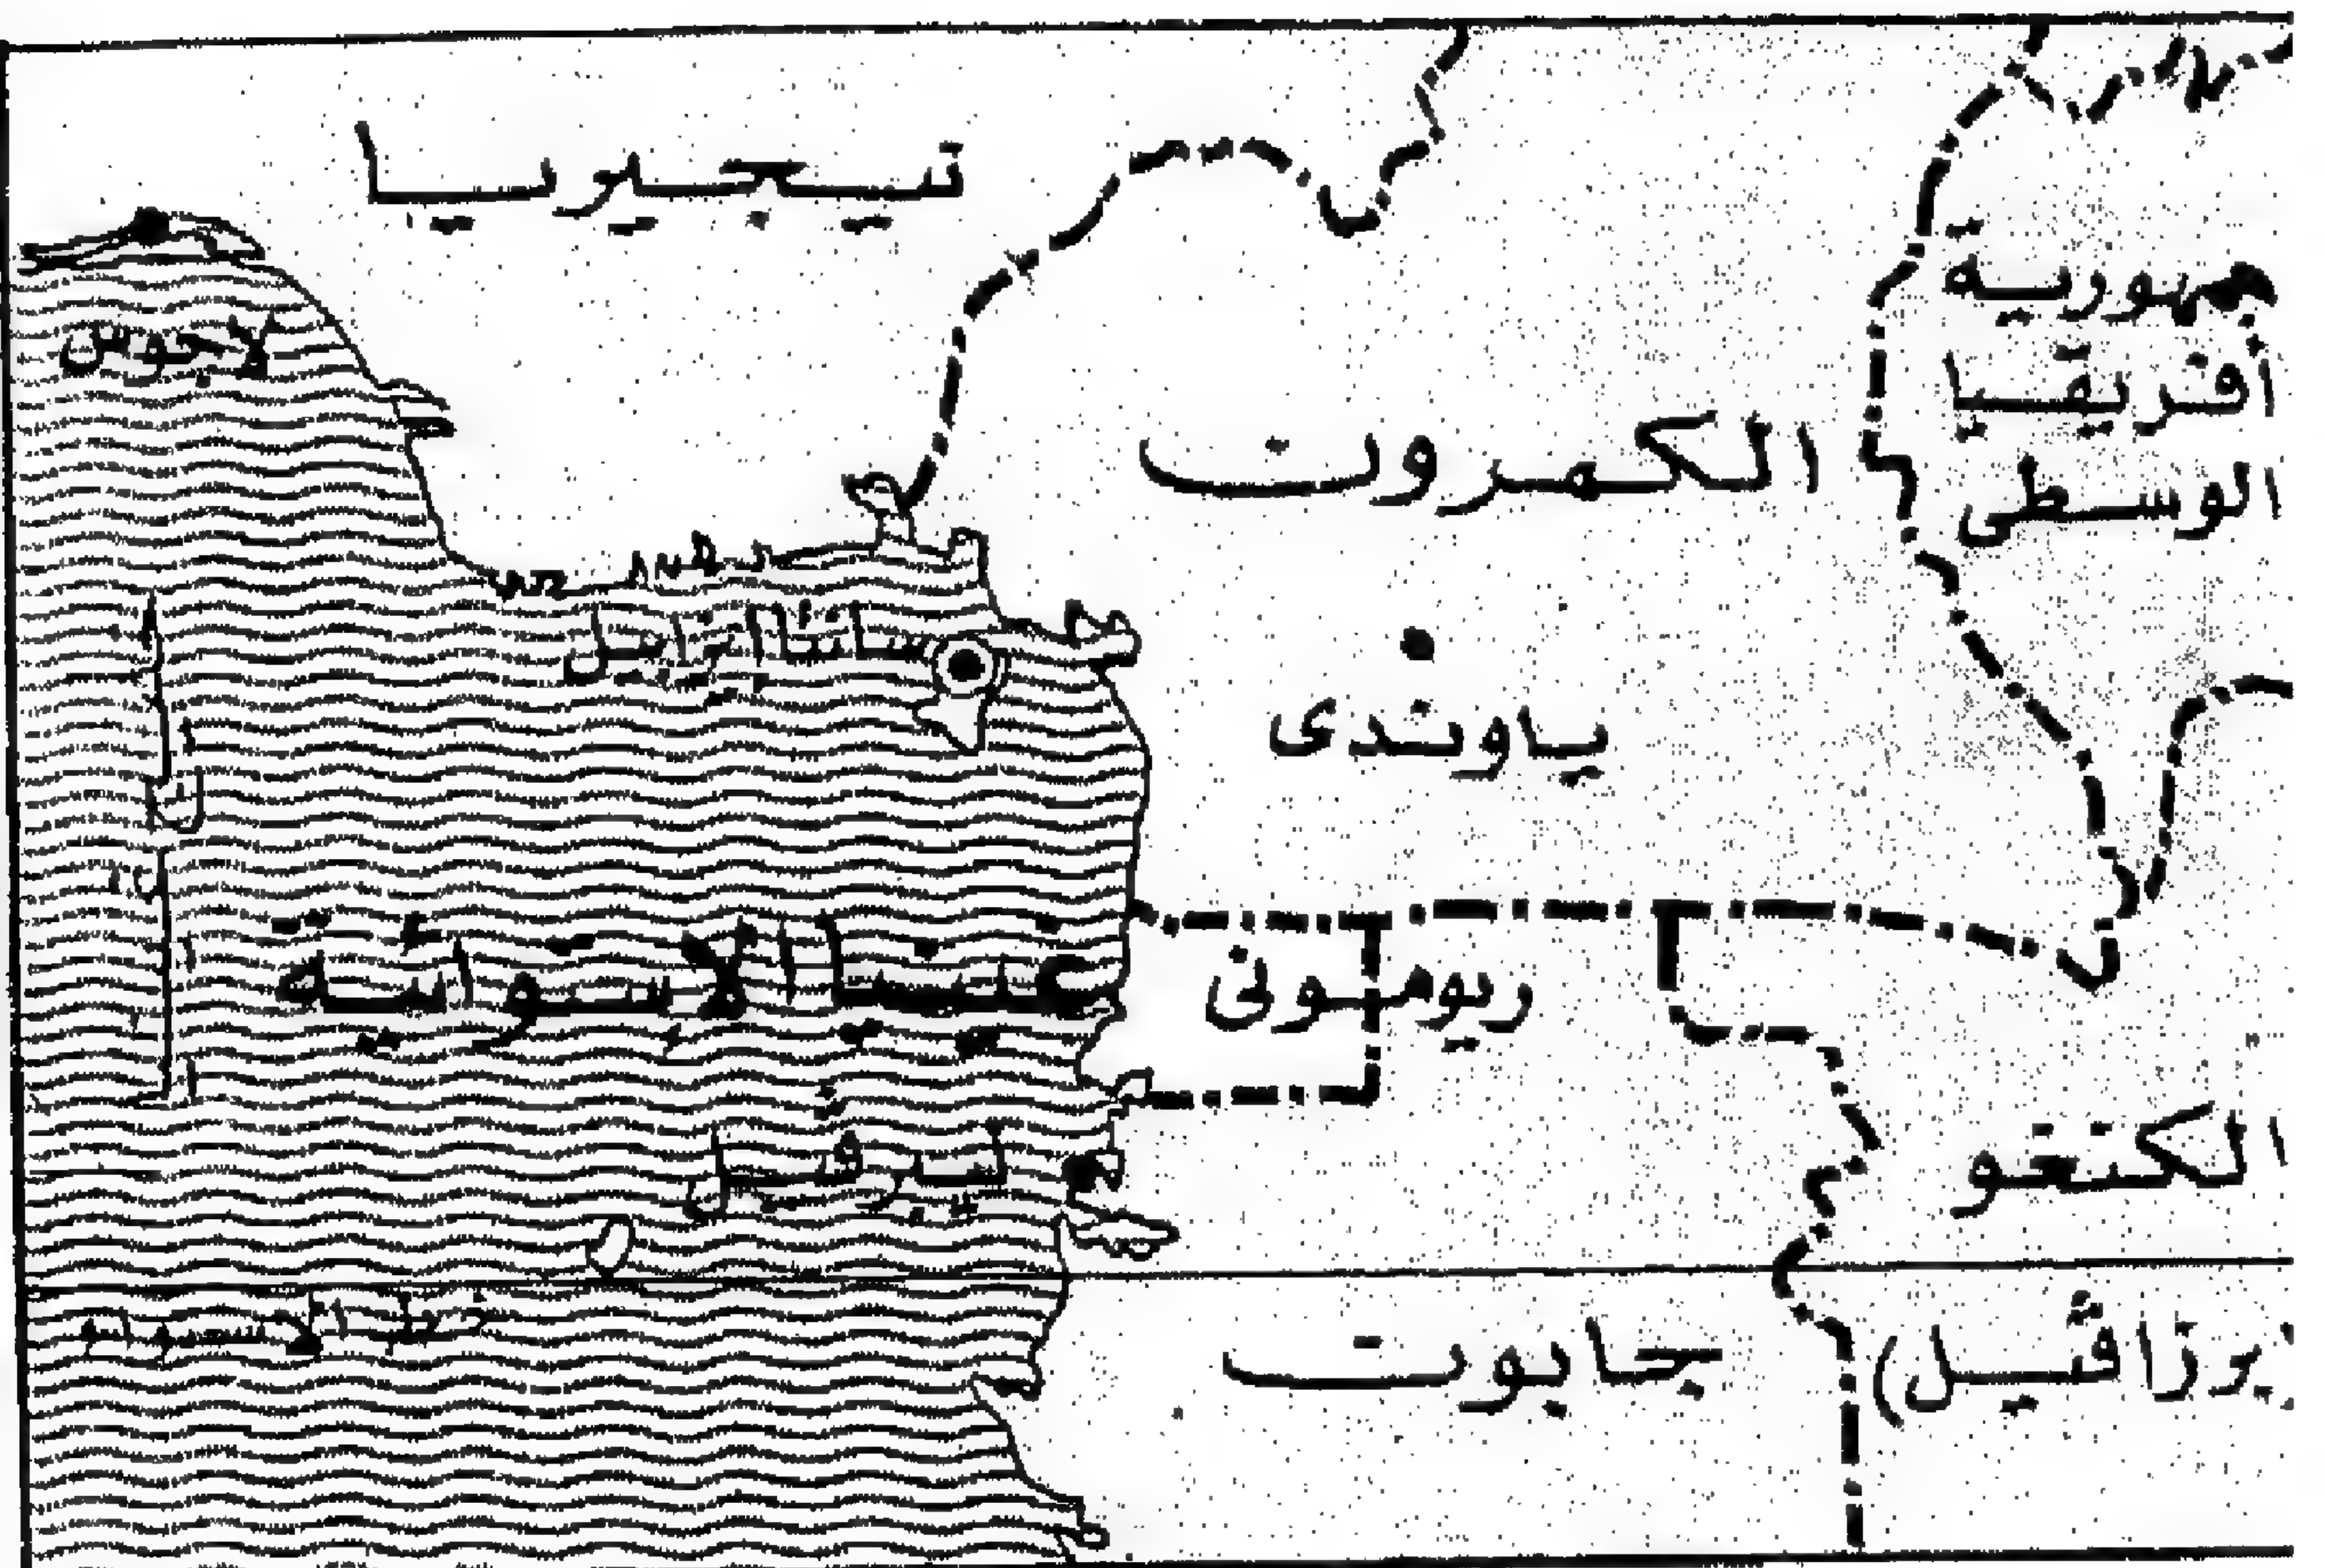 نيجيريا
جمهورية
أفريقيا
الوسطى
لاجوس
الكمرون
سانتا ايزابيل
ياوندي
غينيا الاستوائية
ريوموني
الكنغو
ليبرفيل
خط الاستواء
جابون
برزافيل)